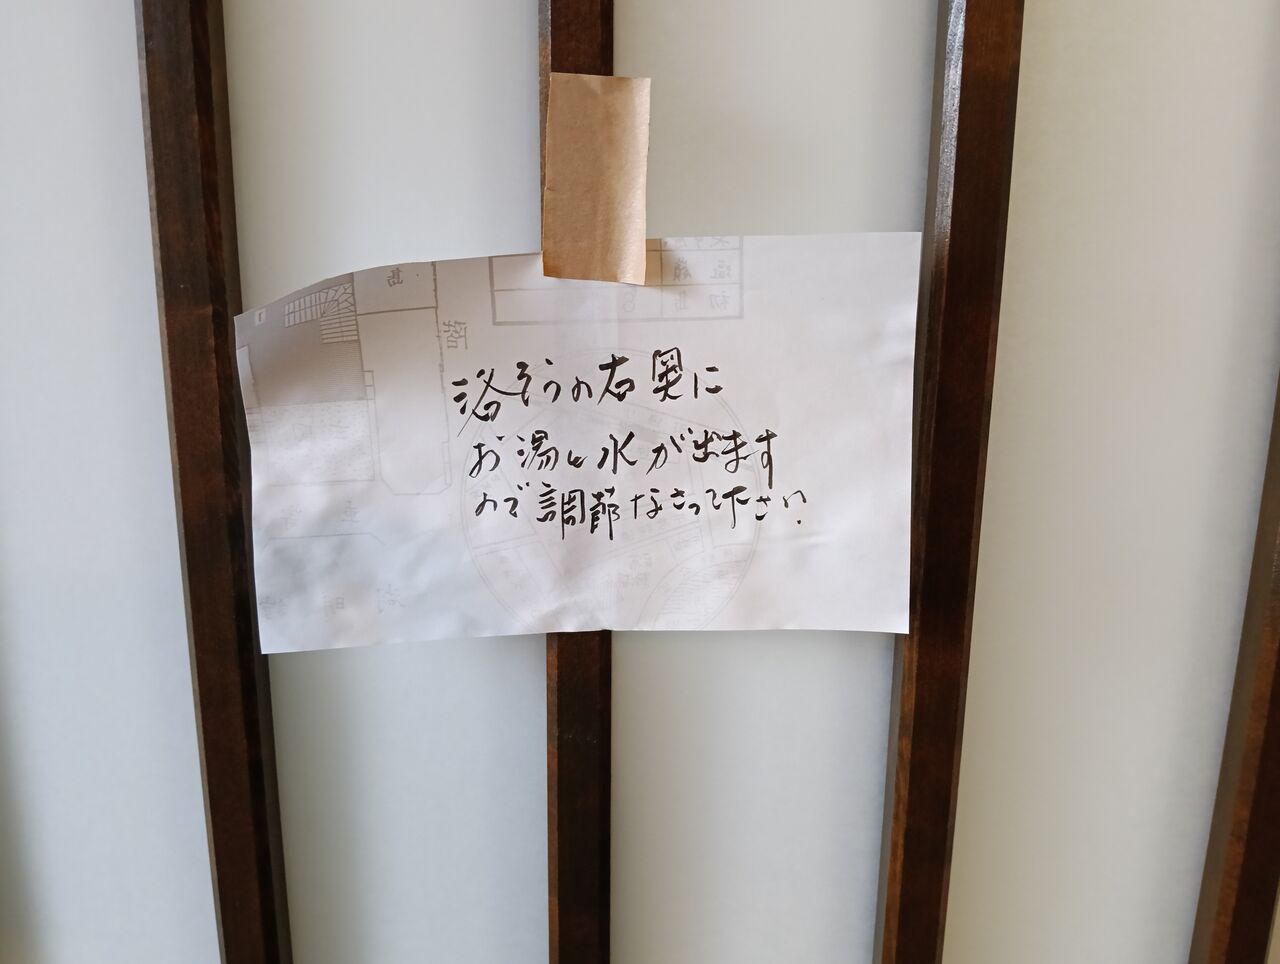 浴そうの右奥に
お湯と水が出ます
ので調節なさって下さい.